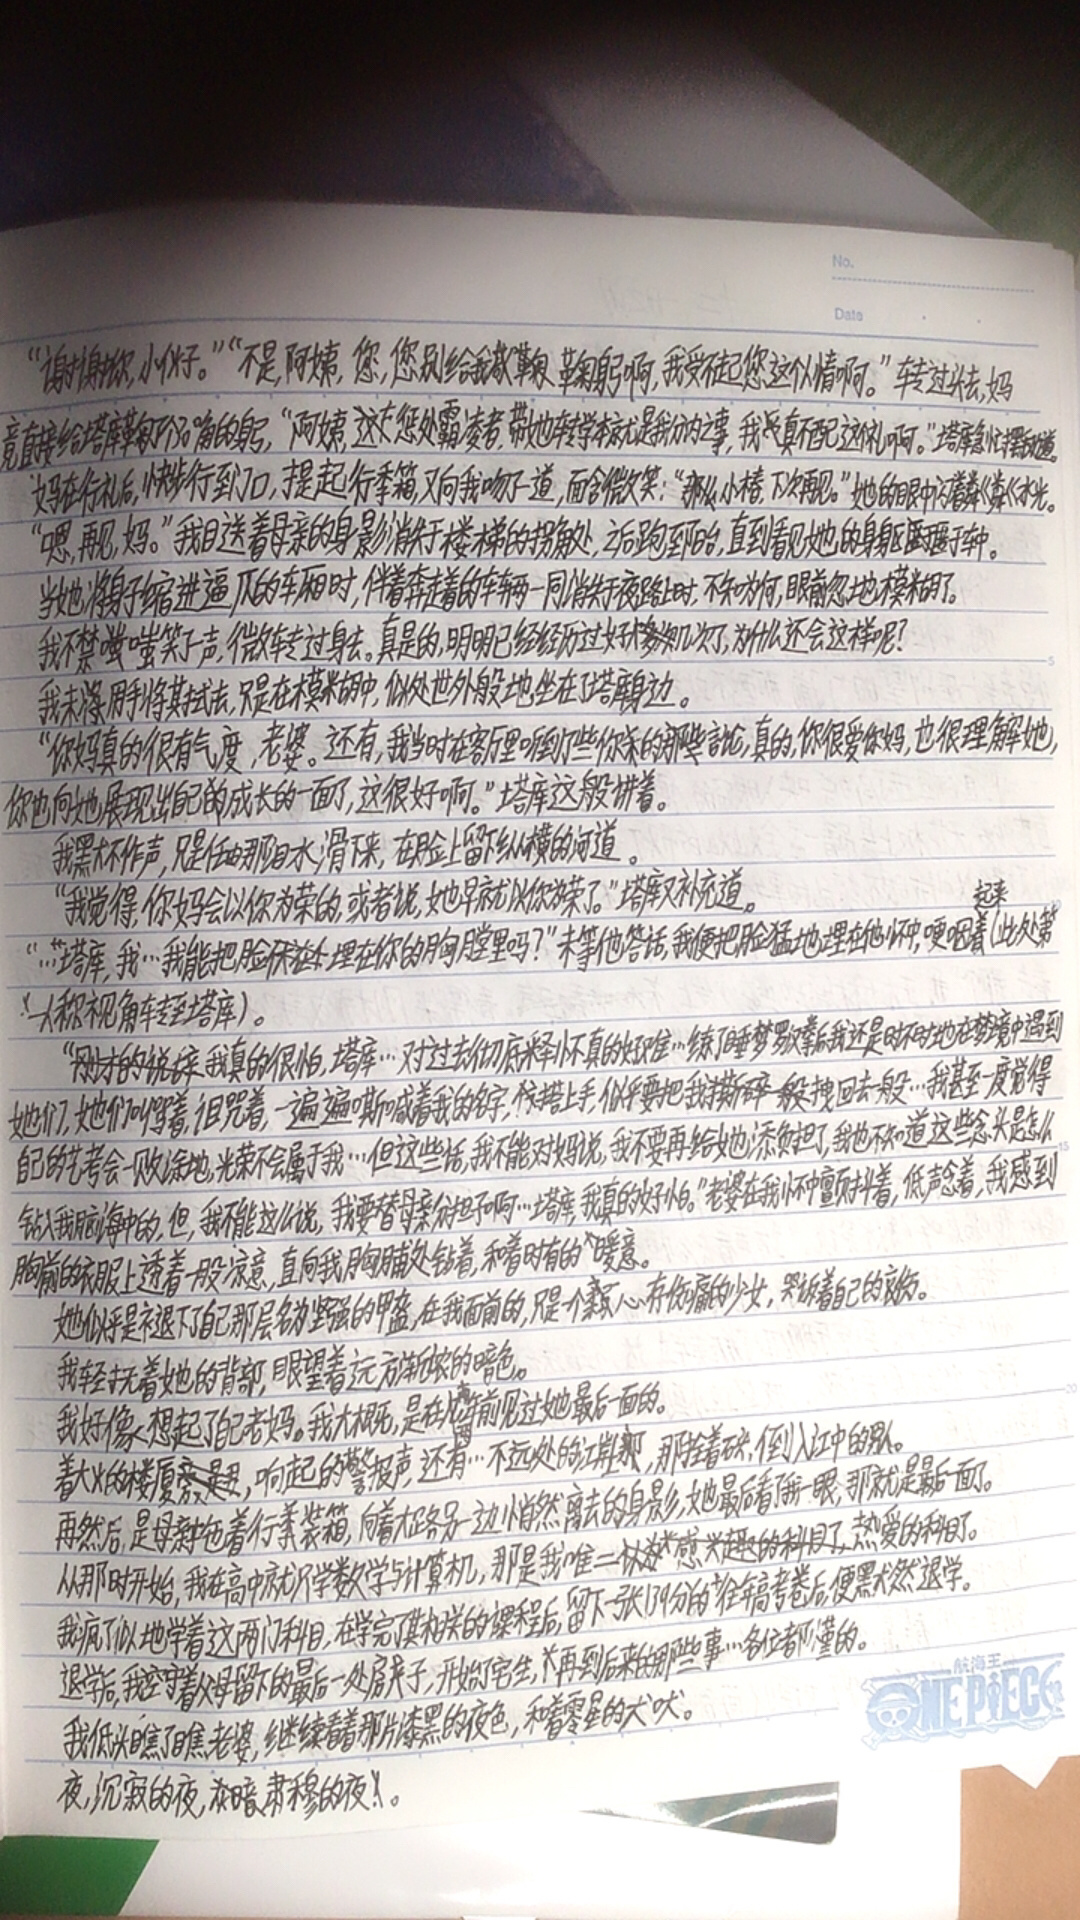 No.
Date
“谢谢你,小伙子。”“不是,阿姨,您,您别给我鞠躬啊,我受不起您这个情啊。”转过头去,妈
竟直接给塔库鞠了个90°的躬,“阿姨,这惩处霸凌者,带她转学本就是我分内之事,我真不配这个礼啊。”塔库急忙摆手道。
妈在行礼后,快步行到门口,提起行李箱,又向我吻了一道,面含微笑:“那么,小椿,下次再见。”她的眼中闪着粼粼水光。
“嗯,再见,妈。”我目送着母亲的身影消失于楼梯的拐角处,之后跑到阳台,直到看见她的身躯匿于车中。
当她将身子缩进逼仄的车厢时,伴着奔走着的车辆一同消失于夜路上时,不知为何,眼前忽地模糊了。
我不禁嗤嗤笑了声,微转过身去。真是的,明明已经经历过好几次了,为什么还会这样呢?
我未用手将其拭去,只是在模糊中,似处世外般地坐在了塔库身边。
“你妈真的很有气度,老婆。还有,我当时在客厅里听到了些你亲的那些言论,真的,你很爱你妈,也很理解她,
你也向她展现出自己的成长的一面了,这很好啊。”塔库这般讲着。
我默不作声,只是任由那泪水滑下来,在脸上留下纵横的河道。
“我觉得,你妈会以你为荣的,或者说,她早就以你为荣了。”塔库又补充道。
“…塔库,我…我能把脸埋在你的胸膛里吗?”未等他答话,我便把脸猛地埋在他怀中,哽咽起来(此处第
一人称视角转至塔库)。
“我真的很怕,塔库…对过去彻底释怀真的好难…练了睡梦罗汉拳后我还是时不时地在梦境中遇到
她们,她们叫嚣着,诅咒着,一遍遍嘶喊着我的名字,伸搭上手,似乎要把我拽回去一般…我甚至一度觉得
自己的艺考会一败涂地,光荣不会属于我…但这些话,我不能对妈说,我不要再给她添负担了,我也不知道这些念头是怎么
钻入我脑海中的,但,我不能这么说,我要替母亲分担子啊…塔库,我真的好怕。”老婆在我怀中颤抖着,低声念着,我感到
胸前的衣服上透着一股凉意,直向我胸脯处钻着,和着时有的暖意。
她似乎是褪下了自己那层名为坚强的甲盔,在我面前的,只是个心存伤痛的少女,哭诉着自己的哀伤。
我轻抚着她的背部,眼望着远方渐浓的暗色。
我好像想起了自己老妈。我大概,是在几年前见过她最后一面的。
着大火的楼厦,响起的警报声,还有…不远处的江畔,那拴着砖,倒入江中的男人。
再然后,是母亲拖着行装箱,向着大路另一边悄然离去的身影,她最后看了我一眼,那就是最后一面了。
从那时开始,我在高中就只学数学与计算机,那是我唯二感兴趣的科目了,热爱的科目了。
我疯了似地学着这两门科目,在学完了其相关的课程后,留下一张139分的往年高考卷后,便黑然退学。
退学后,我空守着父母留下的最后一处房子,开始了宅生,再到后来的那些事…各位都懂的。
我低头瞧了瞧老婆,继续看着那片漆黑的夜色,和着零星的犬吠。
夜,沉寂的夜,暗肃穆的夜。
航海王
ONE PIECE